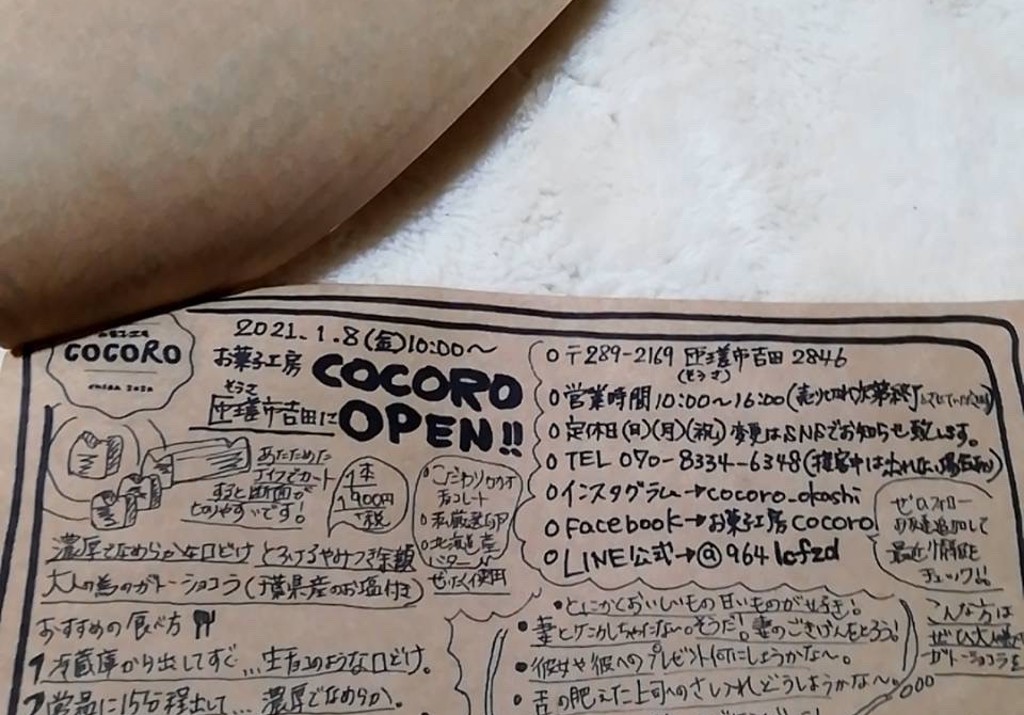 COCORO
CHIBA 2020
2021.1.8(金)10:00〜
お菓子工房 COCORO
そうさ
匝瑳市吉田に OPEN!!
あたためた
ナイフでカート
すると断面が
切りやすいです!
1本
1,900円
+税
こだわりカカオ
チョコレート
北海道産
バター
ぜいたく使用
濃厚でなめらかな口どけ とろけるやみつき余韻
大人の為のガトーショコラ(千葉県産のお塩付き)
おすすめの食べ方
1 冷蔵庫から出してすぐ...生チョコのような口どけ。
2 常温に15分程出して... 濃厚でなめらか。
〒289-2169 匝瑳市吉田 2846
(そうさ)
営業時間 10:00〜16:00(売り切れ次第終了とさせていただきます)
定休日(日)(月)(祝) 変更はSNSでお知らせ致します。
TEL 070-8334-6348(接客中は出れない場合あり)
インスタグラム→cocoro_okashi
Facebook→お菓子工房 COCORO
LINE公式→@964lcfzd
ぜひフォロー
お友達追加して
最新情報を
チェック!!
・とにかくおいしいもの 甘いものが大好き!
・妻とケンカしちゃったな〜。そうだ!妻のごきげんをとろう!
・彼女や彼へのプレゼント何にしようかな〜。
・舌の肥えた上司へのさし入れどうしようかな〜。
こんな方は
ぜひ大人の為の
ガトーショコラを